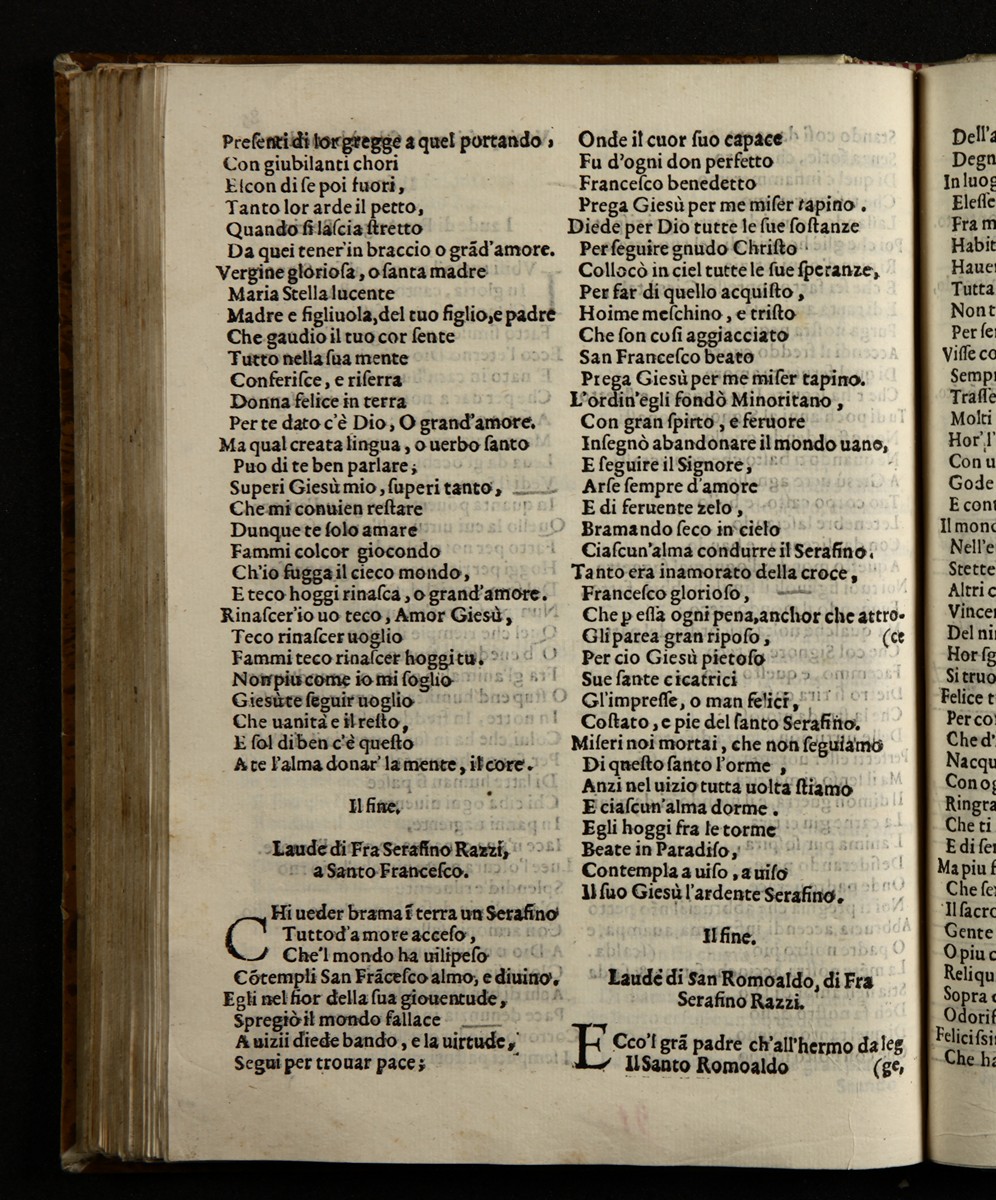 Preſenti di lor gregge a quel portando,
Con giubilanti chori
Eſcon di ſe poi fuori,
Tanto lor arde il petto,
Quando ſi laſcia ſtretto
Da quei tener'in braccio o grãd'amore.
Vergine glorioſa, o ſanta madre
Maria Stella lucente
Madre e figliuola,del tuo figlio,e padre
Che gaudio il tuo cor ſente
Tutto nella ſua mente
Conferiſce, e riſerra
Donna felice in terra
Per te dato c'è Dio, O grand'amore.
Ma qual creata lingua, o uerbo ſanto
Puo di te ben parlare;
Superi Gieſù mio, ſuperi tanto,
Che mi conuien reſtare
Dunque te ſolo amare
Fammi colcor giocondo
Ch'io fugga il cieco mondo,
E teco hoggi rinaſca, o grand'amore.
Rinaſcer'io uo teco, Amor Gieſù,
Teco rinaſcer uoglio
Fammi teco rinaſcer hoggi tu.
Non piu come io mi ſoglio
Gieſù te ſeguir uoglio
Che uanità e il reſto,
E ſol di ben c'è queſto
A te l'alma donar' la mente, il core.
Il fine.
Laude di Fra Serafino Razzi,
a Santo Franceſco.
CHi ueder brama ĩ terra un Serafino
Tutto d'amore acceſo,
Che'l mondo ha uilipeſo
Cõtempli San Frãceſco almo, e diuino.
Egli nel fior della ſua giouentude,
Spregiò il mondo fallace
A uizii diede bando, e la uirtude,
Segui per trouar pace;
Onde il cuor ſuo capace
Fu d'ogni don perfetto
Franceſco benedetto
Prega Gieſù per me miſer tapino.
Diede per Dio tutte le ſue ſoſtanze
Per ſeguire gnudo Chriſto
Collocò in ciel tutte le ſue ſperanze,
Per far di quello acquiſto,
Hoime meſchino, e triſto
Che ſon coſi aggiacciato
San Franceſco beato
Prega Gieſù per me miſer tapino.
L'ordin'egli fondò Minoritano,
Con gran ſpirto, e feruore
Inſegnò abandonare il mondo uano,
E ſeguire il Signore,
Arſe ſempre d'amore
E di feruente zelo,
Bramando ſeco in cielo
Ciaſcun'alma condurre il Serafino.
Tanto era inamorato della croce,
Franceſco glorioſo,
Che ꝑ eſſa ogni pena,anchor che attro-
Gli parea gran ripoſo, (ce
Per cio Gieſù pietoſo
Sue ſante cicatrici
Gl'impreſſe, o man felici,
Coſtato, e pie del ſanto Serafino.
Miſeri noi mortai, che non ſeguiamo
Di queſto ſanto l'orme,
Anzi nel uizio tutta uolta ſtiamo
E ciaſcun'alma dorme.
Egli hoggi fra le torme
Beate in Paradiſo,
Contempla a uiſo, a uiſo
Il ſuo Gieſù l'ardente Serafino.
Il fine.
Laude di San Romoaldo, di Fra
Serafino Razzi.
ECco'l grã padre ch'all'hermo da leg
Il Santo Romoaldo (ge,
Dell'a
Degn
In luog
Eleſſe
Fra m
Habit
Haue
Tutta
Non t
Per ſe
Viſſe co
Semp
Traſſe
Molti
Hor'l'
Con u
Gode
E cont
Il mond
Nell'e
Stette
Altri c
Vince
Del ni
Hor ſg
Si truo
Felice t
Per co
Che d'
Nacqu
Con og
Ringra
Che ti
E di ſe
Ma piu f
Che ſe
Il ſacro
Gente
O piu c
Reliqu
Sopra
Odorif
Feliciſsi
Che ha